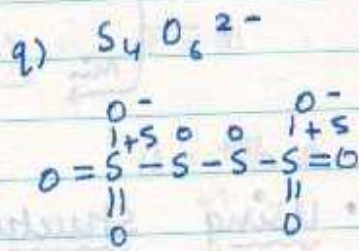 q) S₄O₆²⁻
O⁻ O⁻
+5 0 0 +5
O=S-S-S-S=O
|| ||
O O